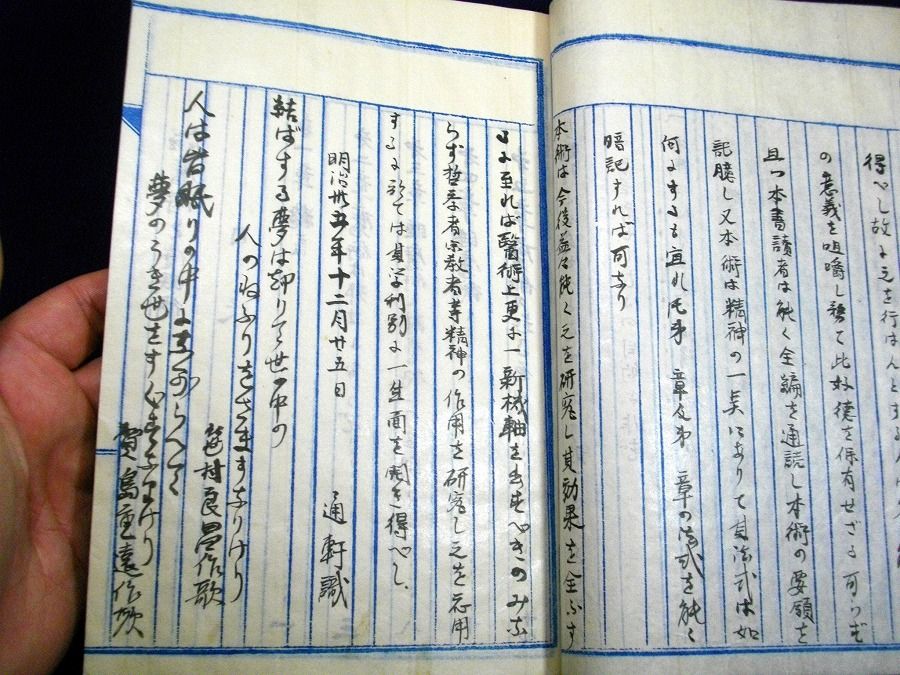 得べし故に之を行はんとする
の意義を咀嚼し
且つ本書讀者は能く全編を通読し本術の要領を
記臆し又本術は精神の一点にありて其法式は如
何にするも宜れ共第 章及第 章の法式を能く
暗記すれば可なり
本術は今後益々能く之を研究し其効果を全ふす
るに至れば醫術上更に一新機軸を出すべきのみな
らず哲学者宗教者等精神の作用を研究し之を応用
するに於ては其学利別に一生面を開き得べし
明治卅五年十二月廿五日 通軒識
結ばする夢は却りて世の中の
人のねふりをさますなりけり
良 作歌
人は皆眠りの中に
夢のうき世をすくなりけり
島重遠作歌